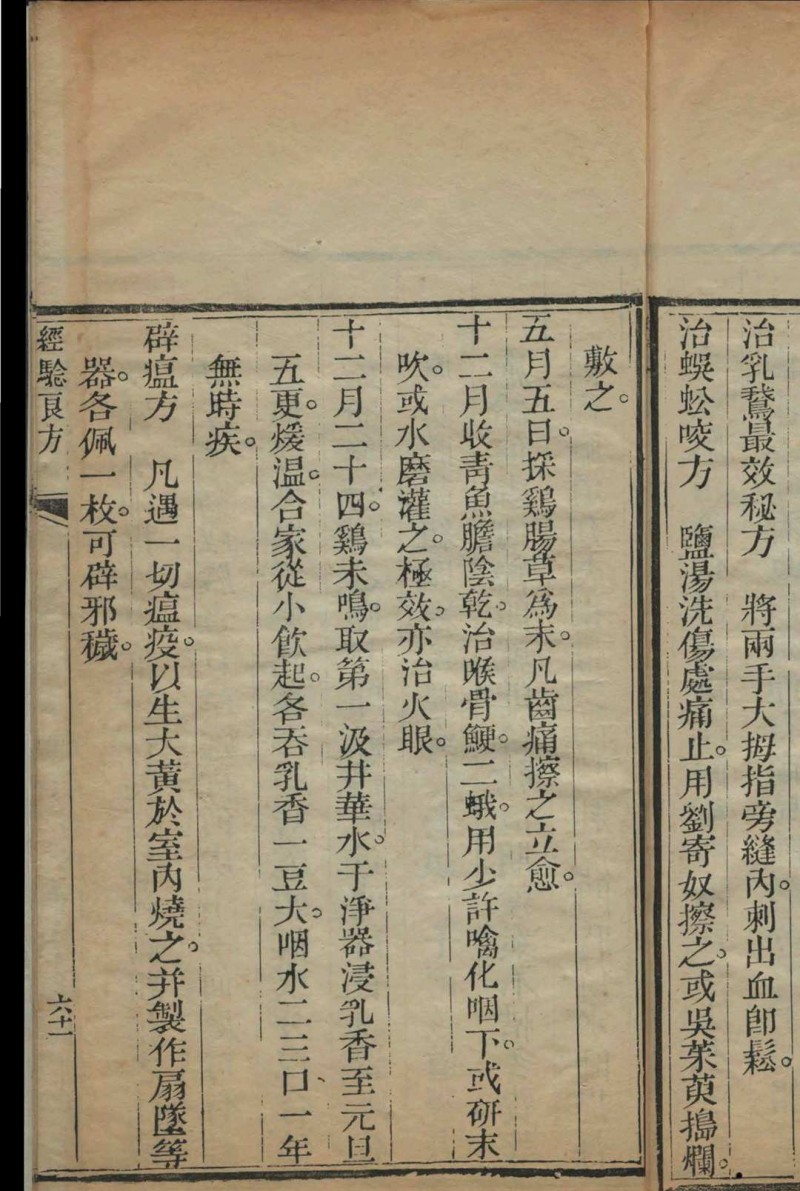 治乳鵞最效秘方　將兩手大拇指旁縫內。刺出血卽鬆。
治蜈蚣咬方　鹽湯洗傷處痛止。用劉寄奴擦之。或吳茱萸搗爛。
敷之。
五月五日。採鷄腸草爲末。凡齒痛擦之立愈。
十二月收靑魚膽陰乾。治喉骨鯁。二蛾。用少許噙化咽下。或研末
吹。或水磨灌之。極效。亦治火眼。
十二月二十四。鷄未鳴。取第一汲井華水。于淨器浸乳香至元旦
五更。煖温。合家從小飮起。各吞乳香一豆大。咽水二三口、一年
無時疾。
辟瘟方　凡遇一切瘟疫。以生大黃於室內燒之。并製作扇墜等
器。各佩一枚。可辟邪穢。
經驗良方
六十一